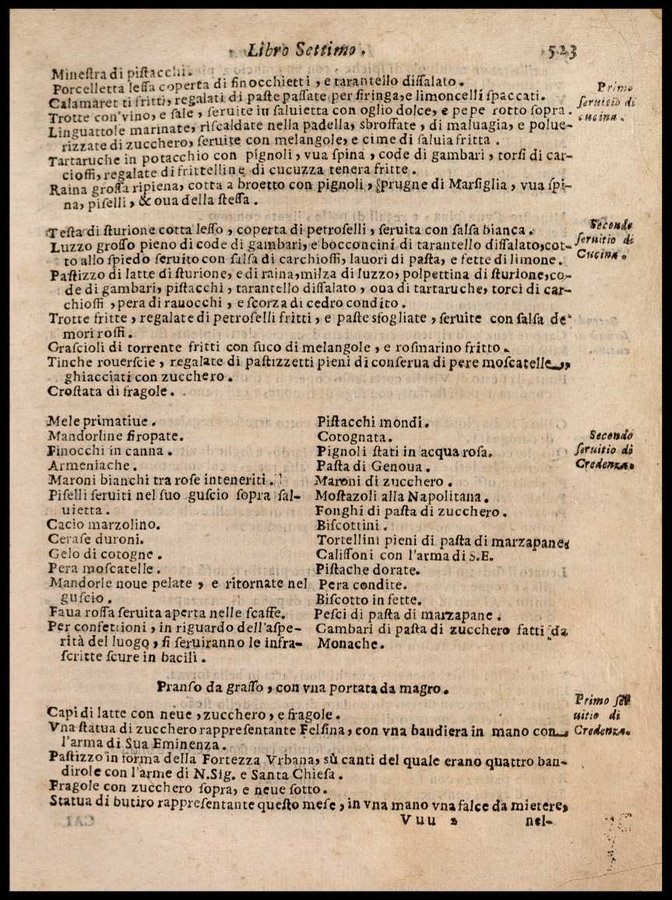 Libro Settimo. 523
Minestra di pistacchi.
Porcelletta lessa coperta di finocchietti, e tarantello dissalato.
Calamaretti fritti, regalati di paste passate per siringa, e limoncelli spaccati.
Trotte con vino, e sale, seruite in saluietta con oglio dolce, e pepe rotto sopra.
Linguattole marinate, riscaldate nella padella, sbroffate, di maluagia, e polue-
rizzate di zucchero, seruite con melangole, e cime di saluia fritta.
Tartaruche in potacchio con pignoli, vua spina, code di gambari, torsi di car-
cioffi, regalate di frittelline di cucuzza tenera fritte.
Raina grossa ripiena, cotta a broetto con pignoli, sprugne di Marsiglia, vua spi-
na, piselli, & oua della stessa.
Primo
seruitio di
cucina.
Testa di sturione cotta lesso, coperta di petroselli, seruita con salsa bianca.
Luzzo grosso pieno di code di gambari, e bocconcini di tarantello dissalato, cot-
to allo spiedo seruito con salsa di carchioffi, lauori di pasta, e fette di limone.
Pastizzo di latte di sturione, e di raina, milza di luzzo, polpettina di sturione, co-
de di gambari, pistacchi, tarantello dissalato, oua di tartaruche, torci di car-
chioffi, pera di rauocchi, e scorza di cedro condito.
Trotte fritte, regalate di petroselli fritti, e paste sfogliate, seruite con salsa de
mori rossi.
Grascioli di torrente fritti con suco di melangole, e rosmarino fritto.
Tinche rouerscie, regalate di pastizzetti pieni di conserua di pere moscatelle,
ghiacciati con zucchero.
Crostata di fragole.
Secondo
seruitio di
Cucina.
Mele primatiue.
Mandorline siropate.
Finocchi in canna.
Armeniache.
Maroni bianchi tra rose inteneriti.
Piselli seruiti nel suo guscio sopra sal-
uietta.
Cacio marzolino.
Cerase duroni.
Gelo di cotogne.
Pera moscatelle.
Mandorle noue pelate, e ritornate nel
guscio.
Faua rossa seruita aperta nelle scaffe.
Per confettioni, in riguardo dell'aspe-
rità del luogo, si seruiranno le infra-
scritte scure in bacili.
Pistacchi mondi.
Cotognata.
Pignoli stati in acqua rosa.
Pasta di Genoua.
Maroni di zucchero.
Mostazoli alla Napolitana.
Fonghi di pasta di zucchero.
Biscottini.
Tortellini pieni di pasta di marzapane.
Calissoni con l'arma di S.E.
Pistache dorate.
Pera condite.
Biscotto in fette.
Pesci di pasta di marzapane.
Gambari di pasta di zucchero fatti da
Monache.
Secondo
seruitio di
Credenza.
Pranso da grasso, con vna portata da magro.
Capi di latte con neue, zucchero, e fragole.
Vna statua di zucchero rappresentante Felsina, con vna bandiera in mano con
l'arma di Sua Eminenza.
Pastizzo in forma della Fortezza Vrbana, sù canti del quale erano quattro ban-
dirole con l'arme di N.Sig. e Santa Chiesa.
Fragole con zucchero sopra, e neue sotto.
Statua di butiro rappresentante questo mese, in vna mano vna falce da mietere,
Primo ser
uitio di
Credenza.
Vuu 2 nel-